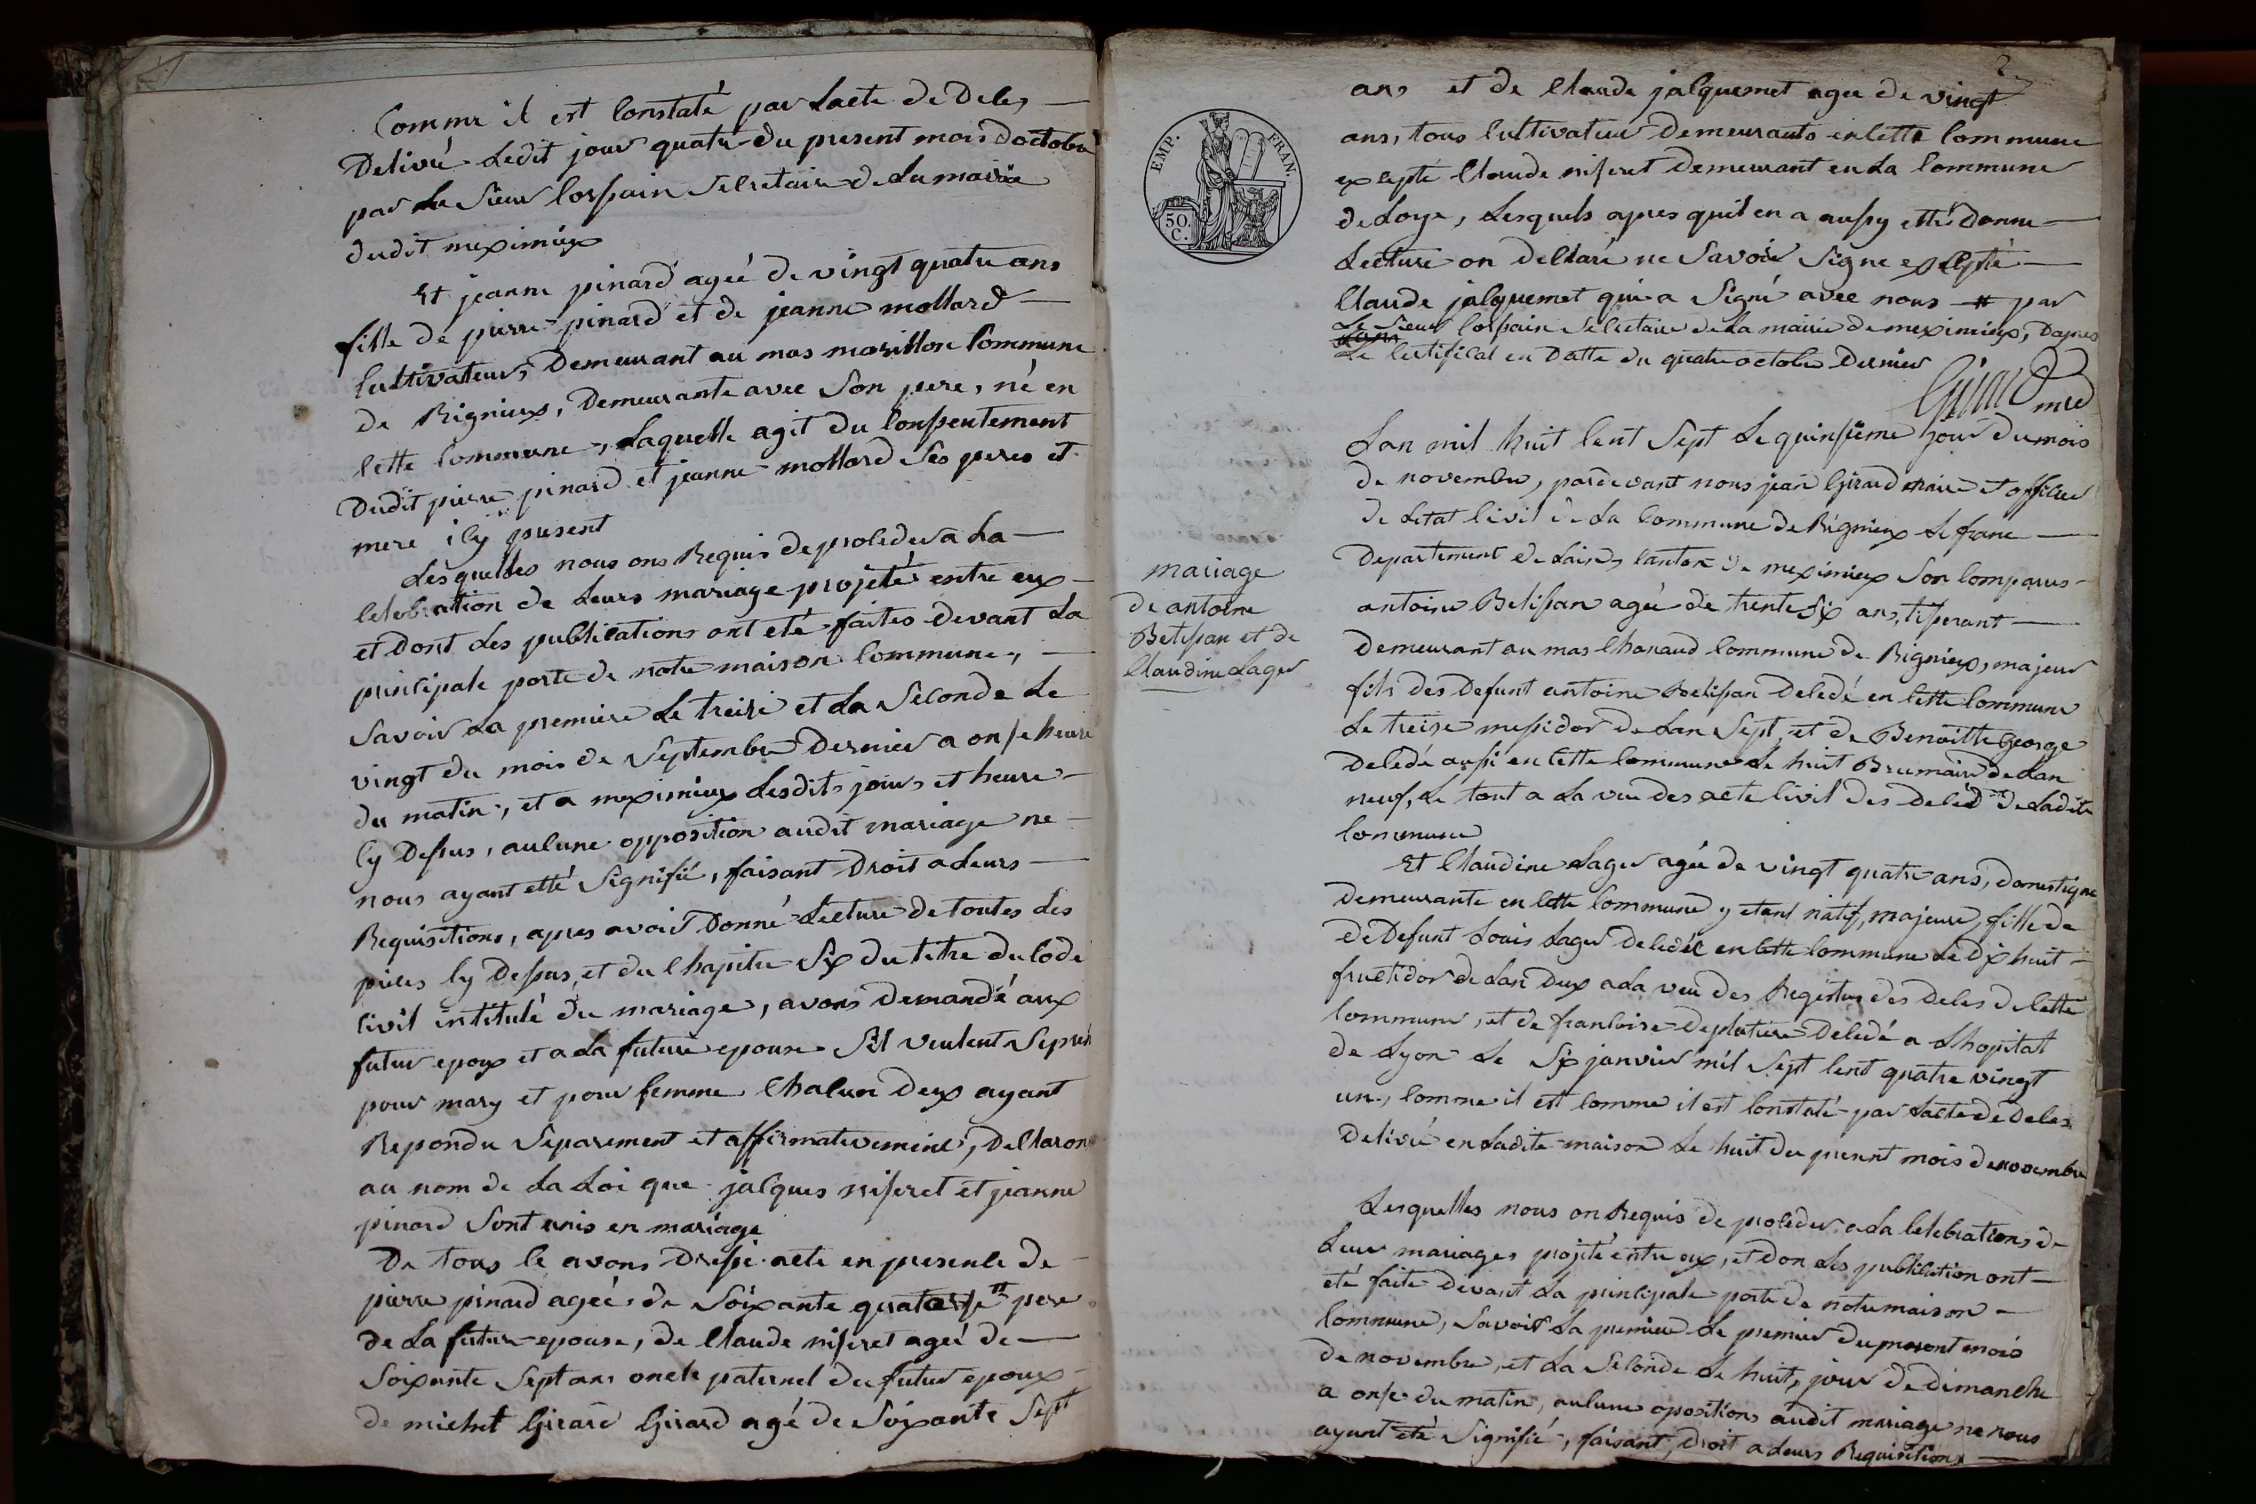 Comme il est Constaté par Lacte de Deces
Delivré Ledit jour quatre du present mois doctobre
par Le Sieur Corsain Secretaire de La mairie
dudit meximieux
Et jeanne pinard ageé de vingt quatre ans
fille de pierre pinard et de jeanne mollard
Cultivateur, Demeurant au mas marillon Commune
de Rignieux, Demeurante avec Son pere, né en
Cette Commune, Laquelle agit du Consentement
Dudit pierre pinard et jeanne mollard Ses peres et
mere icy present
Lesquelles nous ons Requis de proceder a La
Celebration de Leurs mariage projeté entre eux
et Dont Les publications ont eté faites Devant La
principale porte de notre maison Commune,
Savoir La premiere Le treize et La Seconde Le
vingt du mois de Septembre Dernier a onse heure
du matin, et a meximieux Lesdits jours et heure
Cy Dessus, aucune opposition audit mariage ne
nous ayant etté Signifié, faisant Droit a Leurs
Requisitions, apres avoir Donné Lecture de toutes Les
pieces Cy Dessus, et du Chapitre Six du titre du Code
Civil intitulé du mariage, avons Demandé aux
futur epoux et a La future epouse Sil veulent Se prend
pour mary et pour femme Chacun Deux ayant
Repondu Separement et affirmativement, Declarons
au nom de La Loi que jacques niseret et jeanne
pinard Sont unis en mariage
De tous Ce avons Dressé acte en presence de
pierre pinard ageé de Soixante quatorse ans pere
de La future epouse, de Claude niseret ageé de
Soixante Sept ans oncle paternel du futur epoux
de michel Girard Girard agé de Soixante Sept
2
EMP. FRAN.
50 C.
ans et de Claude jacquemet agee de vingt
ans, tous Cultivateur Demeurants en Cette Commune
excepté Claude niseret Demeurant en La Commune
de Loye, Lesquels apres quil en a aussy etté Donne
Lecture on Declaré ne Savoir Signe excepté
Claude jacquemet qui a Signé avec nous # par
Le Sieur Corsain Secretaire de La mairie de meximieux, Dapres
Le Certificat en Datte du quatre octobre Dernier
Girard mre
Lan mil huit Cent Sept Le quinsieme jour du mois
de novembre, pardevant nous jean Girard maire et officier
de Letat Civil de La Commune de Rignieux Le franc
Departement de Lain, Canton de meximieux Son Comparus
antoine Belisan ageé de trente Six ans, tisserant
Demeurant au mas Chanaud Commune de Rignieux, majeur
fils des Defunt antoine Belisan Decedé en Cette Commune
Le treize messidor de Lan Sept, et de Benoitte George
Decedé aussi en Cette Commune Le huit Brumaire de Lan
neuf, Le tout a La vue des acte Civil des Deces de Ladite
Commune
Et Claudine Lager ageé de vingt quatre ans, domestique
Demeurante en Cette Commune y etant natif, majeure, fille de
de Defunt Louis Lager Decedé en Cette Commune Le Dix huit
fructidor de Lan Deux a La veu des Registres des Deces de Cette
Commune, et de francoise Deplatiere Decedé a Lhopital
de Lyon Le Six janvier mil Sept Cent quatre vingt
un, Comme il est Comme il est Constaté par Lacte de Deces
Delivré en Ladite maison Le huit du present mois de novembre
Lesquelles nous on Requis de proceder a La Celebrations de
Leur mariages projeté entre eux, et Don Les publication ont
eté faite Devant La principale porte de notre maison
Commune, Savoir La premiere Le premier du present mois
de novembre, et La Seconde Le huit, jour de Dimanche
a onse du matin, aucune oposition audit mariage ne nous
ayant eté Signifié, faisant Droit a Leurs Requisitions
mariage
de antoine
Belisan et de
Claudine Lager